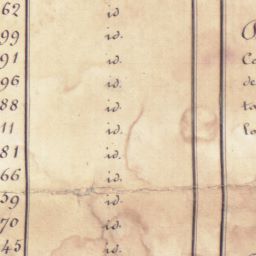 62 id.
99 id.
91 id.
96 id.
88 id.
11 id.
81 id.
66 id.
59 id.
70 id.
45 id.